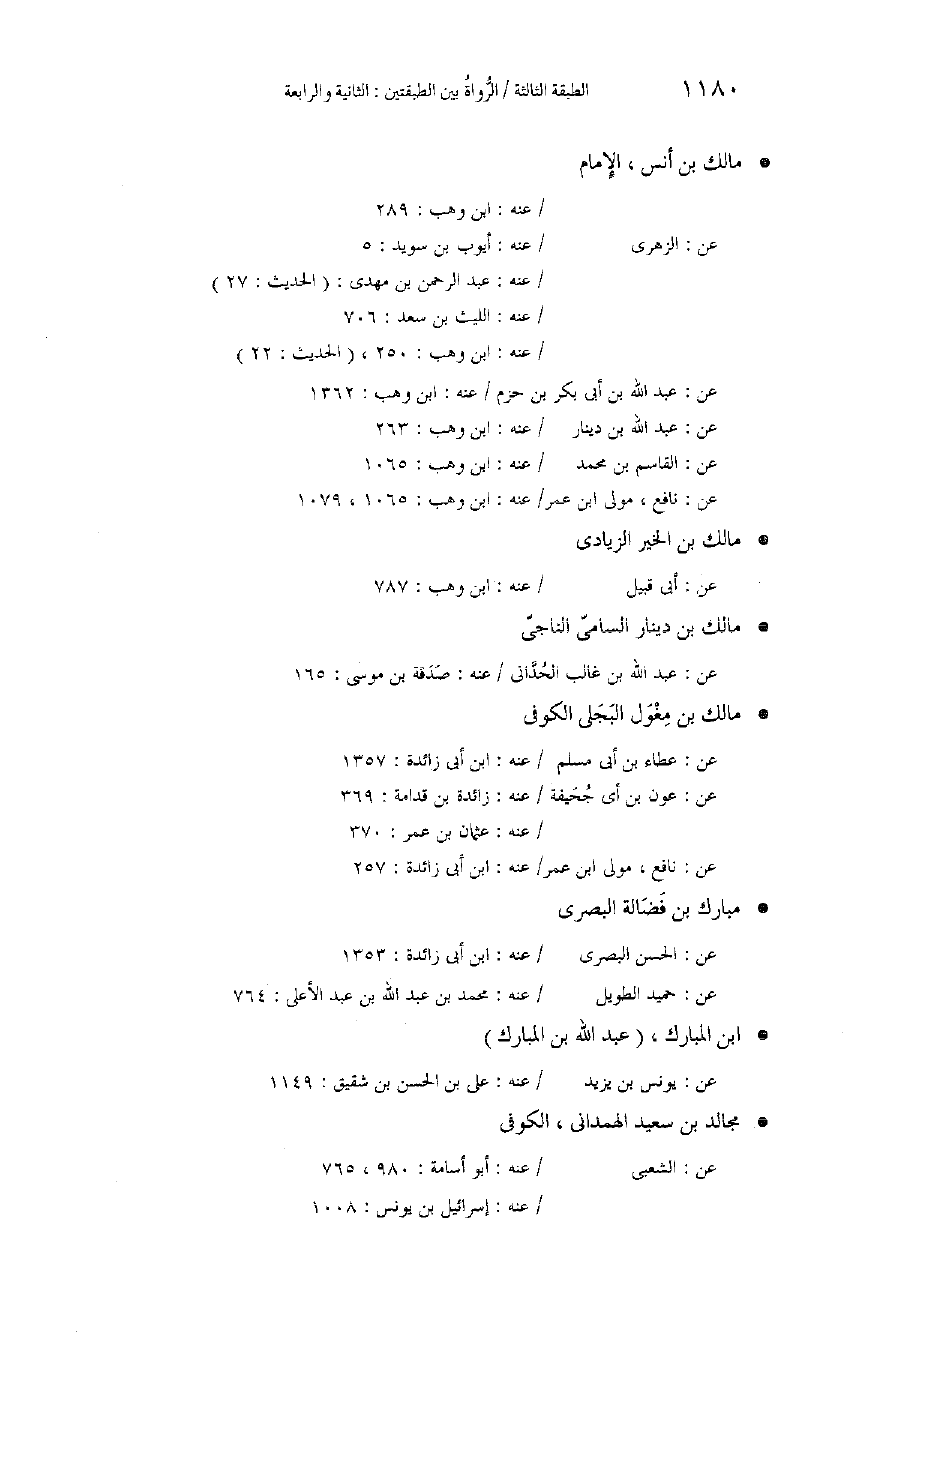 ١١٨٠ الطبقة الثالثة / الرُّواةُ بين الطبقتين : الثانية والرابعة
• مالك بن أنس ، الإمام
/ عنه : ابن وهب : ٢٨٩
عن : الزهرى / عنه : أيوب بن سويد : ٥
/ عنه : عبد الرحمن بن مهدى : ( الحديث : ٢٧ )
/ عنه : الليث بن سعد : ٧٠٦
/ عنه : ابن وهب : ٢٥٠ ، ( الحديث : ٢٢ )
عن : عبد الله بن أبى بكر بن حزم / عنه : ابن وهب : ١٣٦٢
عن : عبد الله بن دينار / عنه : ابن وهب : ٢٦٣
عن : القاسم بن محمد / عنه : ابن وهب : ١٠٦٥
عن : نافع ، مولى ابن عمر / عنه : ابن وهب : ١٠٦٥ ، ١٠٧٩
• مالك بن الخير الزيادى
عن : أبى قبيل / عنه : ابن وهب : ٧٨٧
• مالك بن دينار السامىّ الناجىّ
عن : عبد الله بن غالب الحُدَّانى / عنه : صَدَقة بن موسى : ١٦٥
• مالك بن مِغْوَل البَجَلى الكوفى
عن : عطاء بن أبى مسلم / عنه : ابن أبى زائدة : ١٣٥٧
عن : عون بن أى جُحَيفة / عنه : زائدة بن قدامة : ٣٦٩
/ عنه : عثمان بن عمر : ٣٧٠
عن : نافع ، مولى ابن عمر / عنه : ابن أبى زائدة : ٢٥٧
• مبارك بن فَضَالة البصرى
عن : الحسن البصرى / عنه : ابن أبى زائدة : ١٣٥٣
عن : حميد الطويل / عنه : محمد بن عبد الله بن عبد الأعلى : ٧٦٤
• ابن المبارك ، ( عبد الله بن المبارك )
عن : يونس بن يزيد / عنه : على بن الحسن بن شقيق : ١١٤٩
• مجالد بن سعيد الهمدانى ، الكوفى
عن : الشعبى / عنه : أبو أسامة : ٩٨٠ ، ٧٦٥
/ عنه : إسرائيل بن يونس : ١٠٠٨